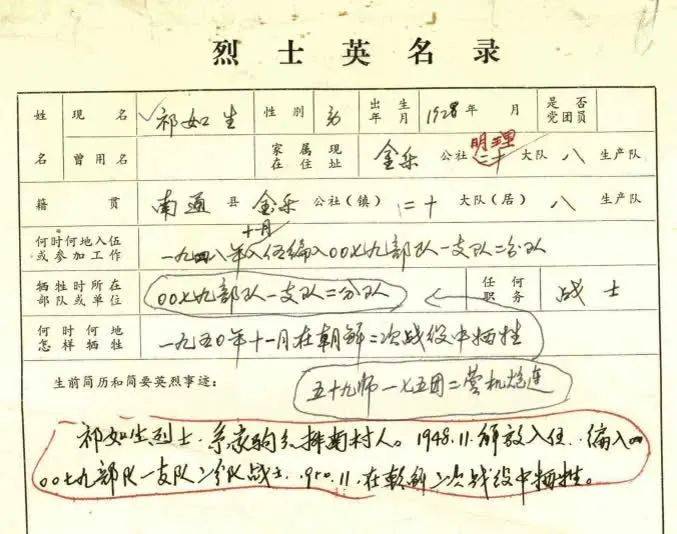 烈士英名录
姓名 现名 祁如生 性别 男 出生年月 1928年 月 是否党团员
曾用名 家属现在住址 金乐 公社 明理 二十 大队 八 生产队
籍贯 南通 县 金乐 公社(镇) 二十 大队(居) 八 生产队
十月
何时何地入伍或参加工作 一九四八年入伍编入00七九部队一支队二分队
牺牲时所在部队或单位 00七九部队一支队二分队 任何职务 战士
何时何地怎样牺牲 一九五0年十一月在朝鲜二次战役中牺牲
生前简历和简要英烈事迹:
五十九师一七五团二营机炮连
祁如生烈士.系家驹 南村人。1948.11.解放入伍.编入
00七九部队一支队二分队战士.1950.11.在朝鲜二次战役中牺牲。